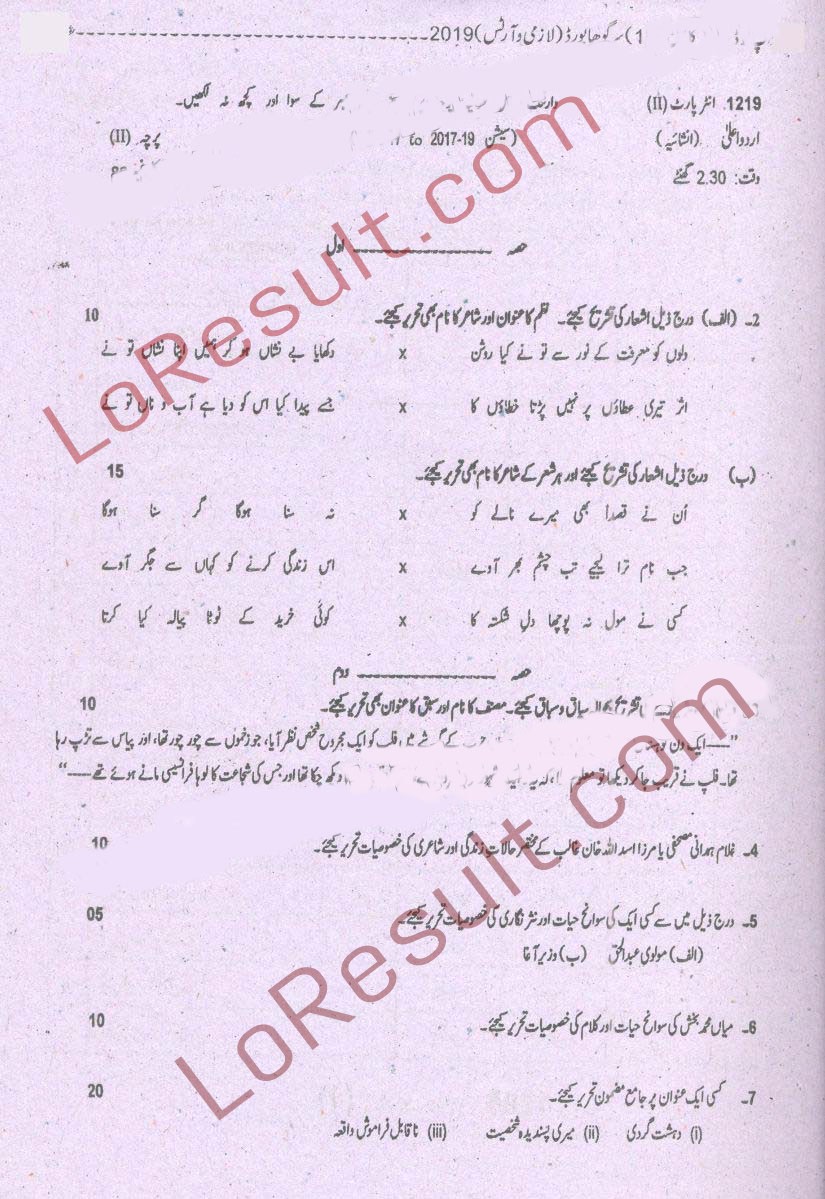 1) سرگودھا بورڈ (لازمی و آرٹس) 2019
1219 انٹر پارٹ (II) کے سوا اور کچھ نہ لکھیں۔
اردو اعلیٰ (انشائیہ) (سیشن 2017-19 to پرچہ (II)
وقت: 2.30 گھنٹے
حصہ ـــــــــ اول
2۔ (الف) درج ذیل اشعار کی تشریح کیجئے۔ نظم کا عنوان اور شاعر کا نام بھی تحریر کیجئے۔ 10
دلوں کو معرفت کے نور سے تو نے کیا روشن x دکھایا بے نشاں ہو کر ہمیں اپنا نشاں تو نے
اثر تیری عطاؤں پر نہیں پڑتا خطاؤں کا x جسے پیدا کیا اس کو دیا ہے آب و ناں تو نے
(ب) درج ذیل اشعار کی تشریح کیجئے اور ہر شعر کے شاعر کا نام بھی تحریر کیجئے۔ 15
اُن نے قصداً بھی میرے نالے کو x نہ سنا ہوگا گر سنا ہوگا
جب نام ترا لیجیے تب چشم بھر آوے x اس زندگی کرنے کو کہاں سے جگر آوے
کسی نے مول نہ پوچھا دلِ شکستہ کا x کوئی خرید کے ٹوٹا پیالہ کیا کرتا
حصہ ـــــــــ دوم
تشریح سیاق و سباق کیجئے۔ مصنف کا نام اور سبق کا عنوان بھی تحریر کیجئے۔ 10
"-----ایک دن کے گوشے میں فلپ کو ایک مجروح شخص نظر آیا، جو زخموں سے چور چور تھا، اور پیاس سے تڑپ رہا
تھا۔ فلپ نے قریب جا کر دیکھا تو معلوم دیکھ چکا تھا اور جس کی شجاعت کا لوہا فرانسیسی مانے ہوئے تھے-----"
4۔ غلام ہمدانی مصحفی یا مرزا اسد اللہ خان غالب کے مختصر حالات زندگی اور شاعری کی خصوصیات تحریر کیجئے۔ 10
5۔ درج ذیل میں سے کسی ایک کی سوانح حیات اور نثر نگاری کی خصوصیات تحریر کیجئے۔ 05
(الف) مولوی عبدالحق (ب) وزیر آغا
6۔ میاں محمد بخش کی سوانح حیات اور کلام کی خصوصیات تحریر کیجئے۔ 10
7۔ کسی ایک عنوان پر جامع مضمون تحریر کیجئے۔ 20
(i) دہشت گردی (ii) میری پسندیدہ شخصیت (iii) ناقابل فراموش واقعہ
LoResult.com
LoResult.com